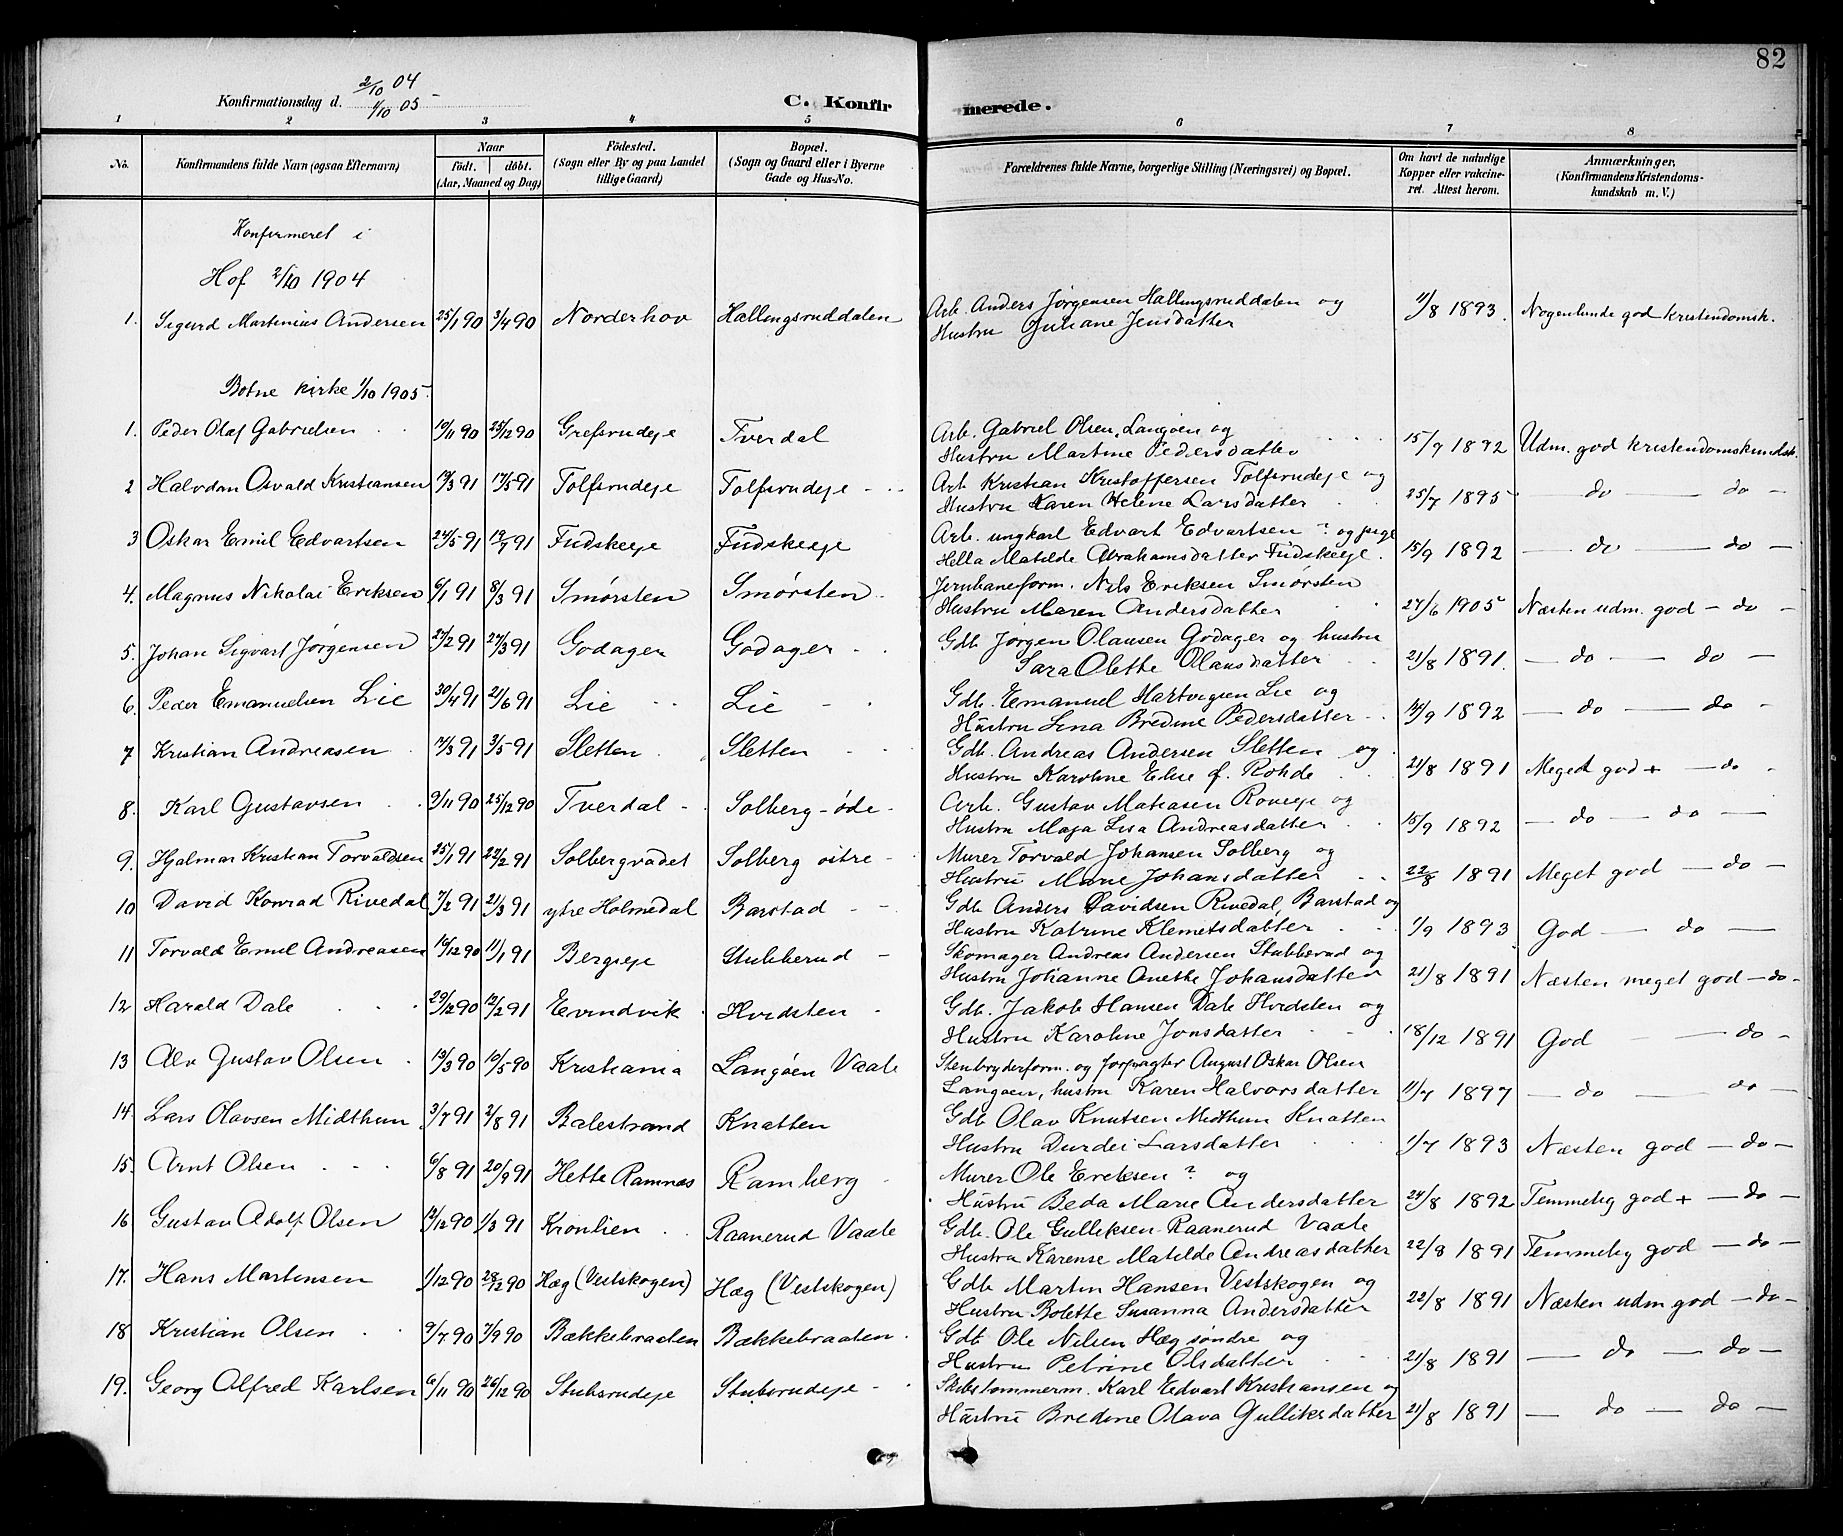 82
Konfirmationsdag d. 2/10 04
1/10 05
C. Konfirmerede.
1 2 3 4 5 6 7 8
No. Konfirmandens fulde Navn (ogsaa Efternavn) Naar født. døbt. (Aar, Maaned og Dag) Fødested. (Sogn eller By og paa Landet tillige Gaard) Bopæl. (Sogn og Gaard eller i Byerne Gade og Hus-No. Forældrenes fulde Navne, borgerlige Stilling (Næringsvei) og Bopæl. Om havt de naturlige Kopper eller vakcineret. Attest herom. Anmærkninger, (Konfirmandens Kristendomskundskab m. V.)
Konfirmeret i
Hof 2/10 1904
1. Sigurd Martinius Andersen 25/1 90 3/4 90 Norderhov Hallingsruddalen Arb. Anders Jørgensen Hallingsruddalen og
Hustru Juliane Jensdatter 11/8 1893. Nogenlunde god kristendomsk.
Botne kirke 1/10 1905.
1. Peder Olaf Gabrielsen 10/11 90 25/12 90 Grefsrudeje Tverdal Arb. Gabriel Olsen, Langøen og
Hustru Martine Pedersdatter 15/9 1892 Udm. god kristendomskundsk.
2 Halvdan Osvald Kristiansen 19/3 91 17/5 91 Tolfsrudeje Tolfsrudeje Arb. Kristian Kristoffersen Tolfsrudeje og
Hustru Karen Helene Larsdatter 25/7 1895 — do — do —
3 Oskar Emil Edvartsen 24/5 91 19/7 91 Fudskeeje Fudskeeje Arb. ungkarl Edvart Edvartsen ? og pige
Hella Matilde Abrahamsdatter Fudskeeje. 15/9 1892 — do — do —
4. Magnus Nikolai Eriksen 6/1 91 8/3 91 Smørsten Smørsten Jernbaneform. Nils Eriksen Smørsten
Hustru Maren Andersdatter 27/6 1905 Næsten udm. god — do —
5. Johan Sigvart Jørgensen 27/2 91 27/3 91 Godager Godager Gdb. Jørgen Olausen Godager og hustru
Sara Olette Olausdatter 21/8 1891. — do — do —
6. Peder Emanuelsen Lie 30/4 91 21/6 91 Lie Lie Gdb. Emanuel Hartvigsen Lie og
Hustru Lina Bredine Pedersdatter 14/9 1892 — do — do —
7 Kristian Andreasen 17/3 91 3/5 91 Sletten Sletten Gdb. Andreas Andersen Sletten og
Hustru Karoline Elise f. Rohde 21/8 1891 Meget god + — do —
8. Karl Gustavsen 9/11 90 25/12 90 Tverdal Solberg-øde Arb. Gustav Matiasen Roveje og
Hustru Maja Lisa Andreasdatter 15/9 1892 — do — do —
9. Hjalmar Kristian Torvaldsen 25/1 91 22/2 91 Solbergvadet Solberg østre Murer Torvald Johansen Solberg og
Hustru Marie Johansdatter 22/8 1891 Meget god — do —
10 David Konrad Rivedal 7/2 91 21/3 91 ytre Holmedal Barstad Gdb. Anders Davidsen Rivedal, Barstad og
Hustru Katrine Klemetsdatter 1/9 1893 God — do —
11 Torvald Emil Andreasen 16/12 90 11/1 91 Bergseje Stubberud Skomager Andreas Andersen Stubberud og
Hustru Johanne Anette Johansdatter 21/8 1891 Næsten meget god — do —
12 Harald Dale 29/12 90 12/2 91 Evindvik Hvidsten Gdb. Jakob Hansen Dale Hvidsten og
Hustru Karoline Jonsdatter 18/12 1891 God — do —
13 Alv Gustav Olsen 13/3 90 10/5 90 Kristiania Langøen Vaale Stenbryderform. og forpagter August Oskar Olsen
Langøen, hustru Karen Halvorsdatter 11/7 1897 — do — do —
14. Lars Olavsen Midthun 3/7 91 2/8 91 Balestrand Knatten Gdb. Olav Knutsen Midthun Knatten
Hustru Durdei Larsdatter 1/7 1893 Næsten god — do —
15. Arnt Olsen 6/8 91 20/9 91 Hette Ramnæs Ramberg Murer Ole Eriksen ? og
Hustru Beda Marie Andersdatter 24/8 1892 Temmelig god + — do —
16 Gustav Adolf Olsen 12/12 90 1/3 91 Kronlien Raanerud Vaale Gdb. Ole Gulliksen Raanerud Vaale
Hustru Karense Matilde Andreasdatter 22/8 1891 Temmelig god — do —
17. Hans Martinsen 1/12 90 28/12 90 Hæg (Vestskogen) Hæg (Vestskogen) Gdb. Martin Hansen Vestskogen og
Hustru Bolette Susanna Andersdatter 22/8 1891 Næsten udm god — do —
18 Kristian Olsen 9/7 90 7/9 90 Bækkebraaten Bækkebraaten Gdb. Ole Nilsen Hæg søndre og
Hustru Petrine Olsdatter 21/8 1891 — do — do —
19. Georg Alfred Karlsen 6/11 90 26/12 90 Stubsrudeje Stubsrudeje Skibstømmerm. Karl Edvart Kristiansen og
Hustru Bredine Olava Gulliksdatter 21/8 1891 — do — do —